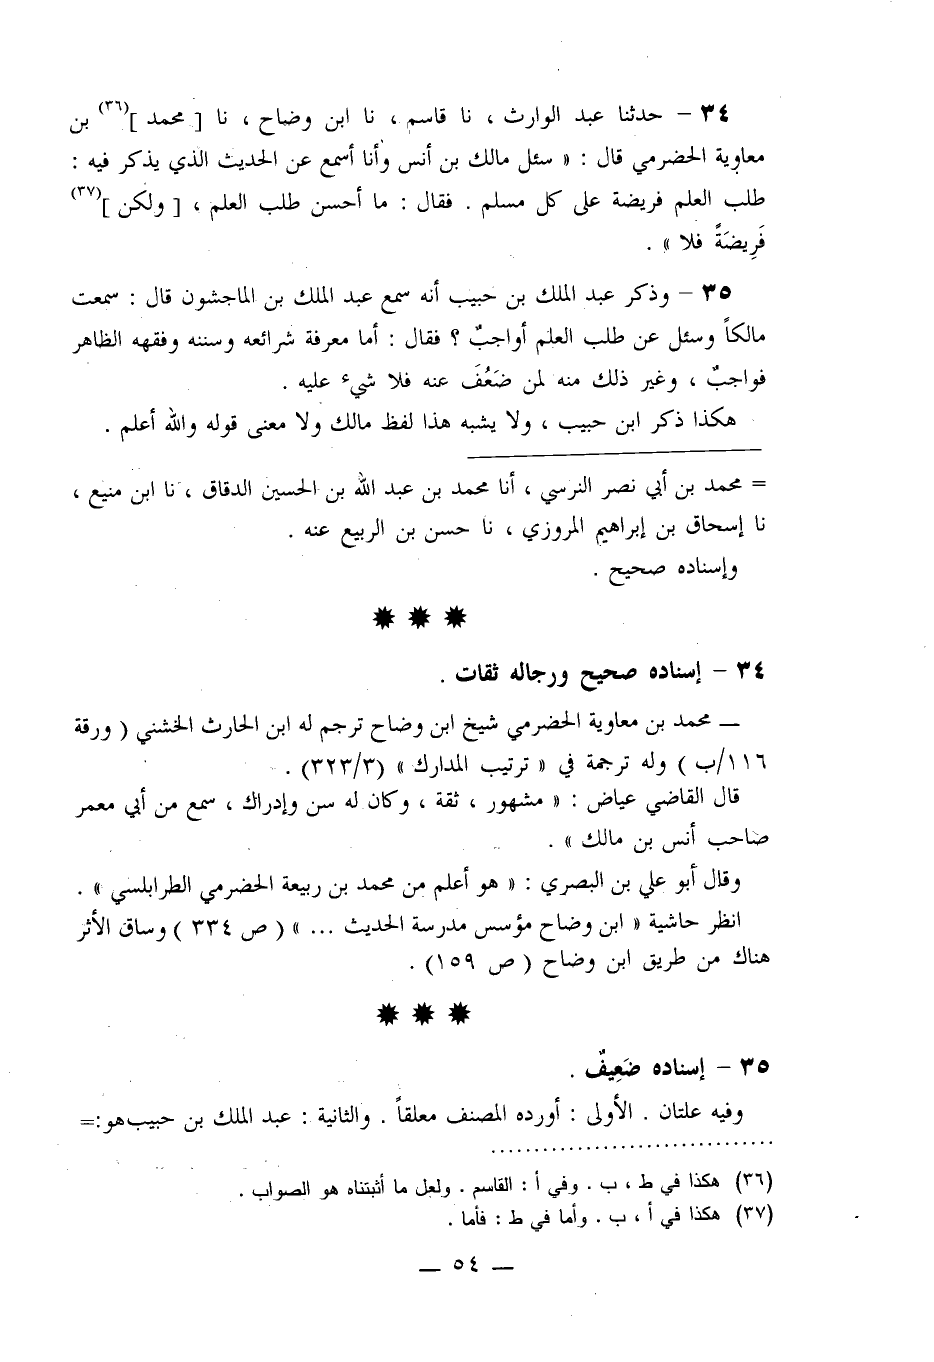 ٣٤ – حدثنا عبد الوارث ، نا قاسم ، نا ابن وضاح ، نا [ محمد ](٣٦) بن
معاوية الحضرمي قال : « سئل مالك بن أنس وأنا أسمع عن الحديث الذي يذكر فيه :
طلب العلم فريضة على كل مسلم . فقال : ما أحسن طلب العلم ، [ ولكن ](٣٧)
فَرِيضَةً فلا » .
٣٥ – وذكر عبد الملك بن حبيب أنه سمع عبد الملك بن الماجشون قال : سمعت
مالكاً وسئل عن طلب العلم أواجبٌ ؟ فقال : أما معرفة شرائعه وسننه وفقهه الظاهر
فواجبٌ ، وغير ذلك منه لمن ضَعُفَ عنه فلا شيء عليه .
هكذا ذكر ابن حبيب ، ولا يشبه هذا لفظ مالك ولا معنى قوله والله أعلم .
= محمد بن أبي نصر النرسي ، أنا محمد بن عبد الله بن الحسين الدقاق ، نا ابن منيع ،
نا إسحاق بن إبراهيم المروزي ، نا حسن بن الربيع عنه .
وإسناده صحيح .
٣٤ – إسناده صحيح ورجاله ثقات .
— محمد بن معاوية الحضرمي شيخ ابن وضاح ترجم له ابن الحارث الخشني ( ورقة
١١٦/ب ) وله ترجمة في « ترتيب المدارك » (٣٢٣/٣) .
قال القاضي عياض : « مشهور ، ثقة ، وكان له سن وإدراك ، سمع من أبي معمر
صاحب أنس بن مالك » .
وقال أبو علي بن البصري : « هو أعلم من محمد بن ربيعة الحضرمي الطرابلسي » .
انظر حاشية « ابن وضاح مؤسس مدرسة الحديث ... » ( ص ٣٣٤ ) وساق الأثر
هناك من طريق ابن وضاح ( ص ١٥٩) .
٣٥ – إسناده ضَعِيفٌ .
وفيه علتان . الأولى : أورده المصنف معلقاً . والثانية : عبد الملك بن حبيب هو :=
(٣٦) هكذا في ط ، ب . وفي أ : القاسم . ولعل ما أثبتناه هو الصواب .
(٣٧) هكذا في أ ، ب . وأما في ط : فأما .
— ٥٤ —